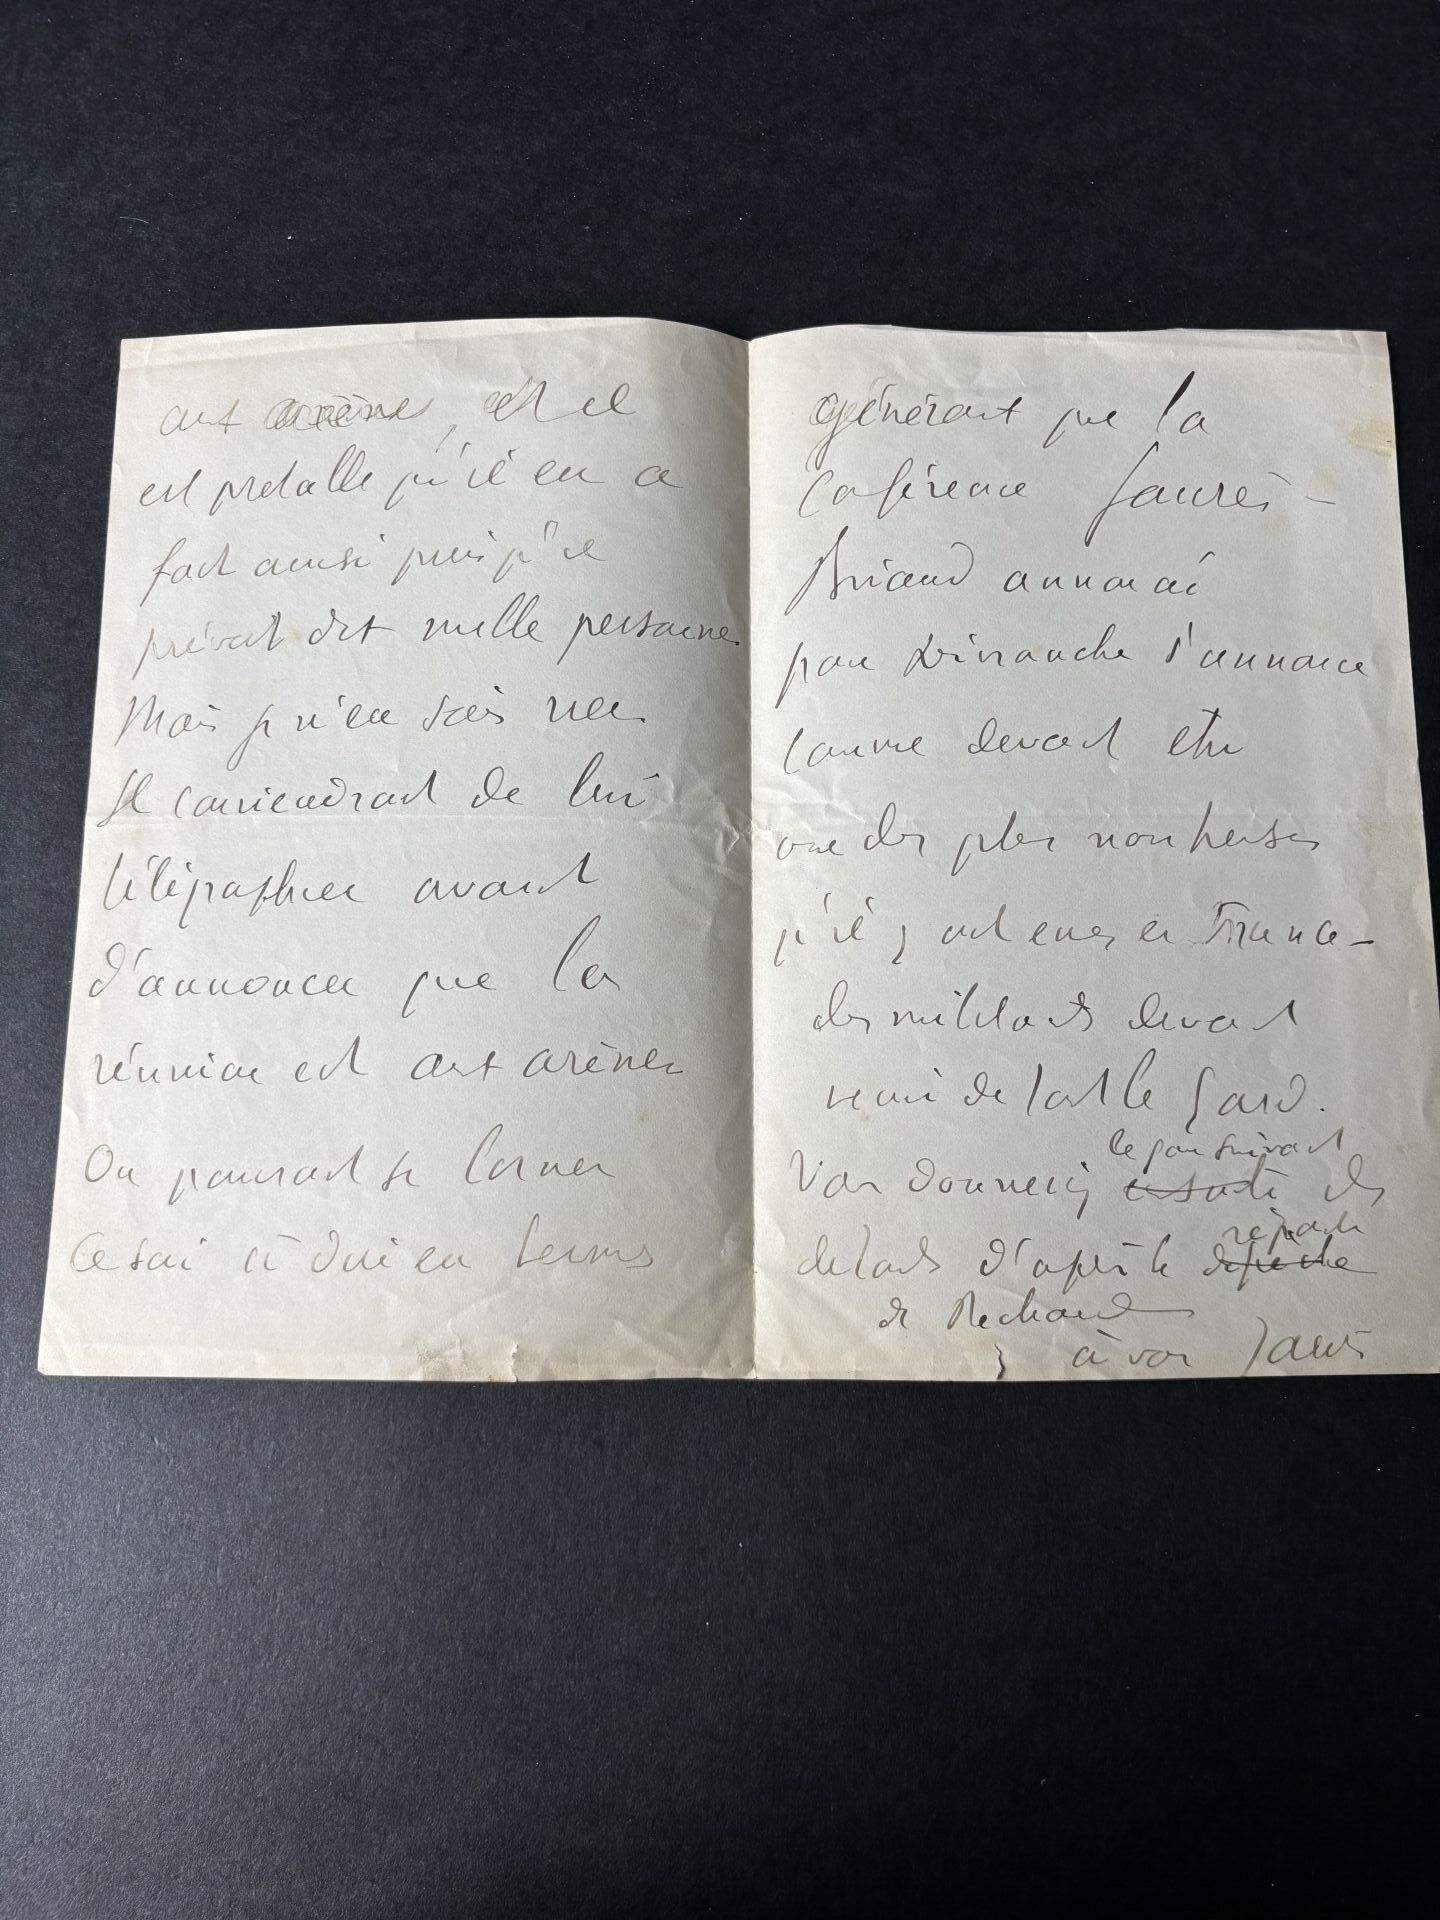 aux arènes, et il
est probable qu'il en a
fait ainsi puisqu'il
prévoit dix mille personnes
Mais je n'en sais rien.
Il conviendrait de lui
télégraphier avant
d'annoncer que la
réunion est aux arènes
On pourrait se borner
ce soir à dire en termes
généraux que la
conférence Jaurès-
Briand annoncée
pour Dimanche s'annonce
comme devant être
une des plus nombreuses
qu'il y ait eues en France -
des militants devant
venir de tout le Gard.
le jour suivant
Vous donneriez ensuite des
réponse
détails d'après la dépêche
de
à vous Jaurès